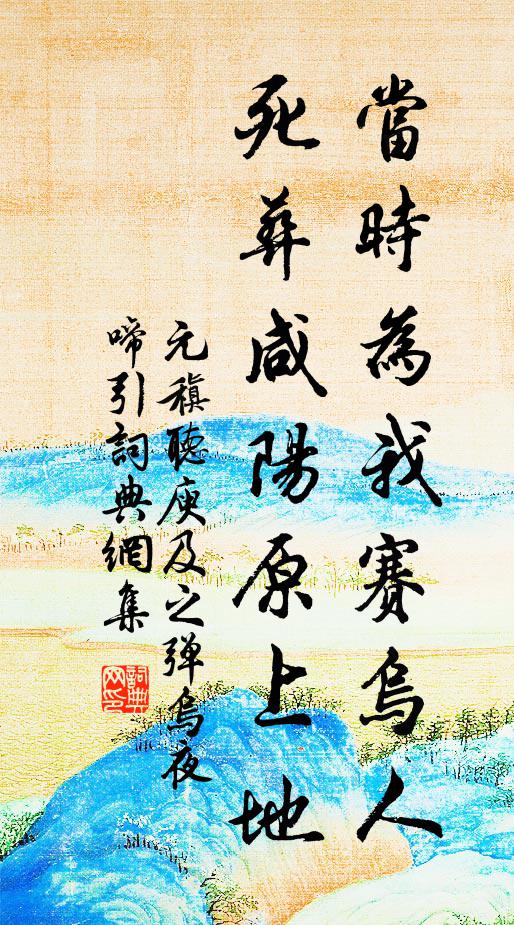 當時為我賽烏人
死葬咸陽原上地
元稹聽庾及之彈烏夜
啼引詞典網集
詞典
网印